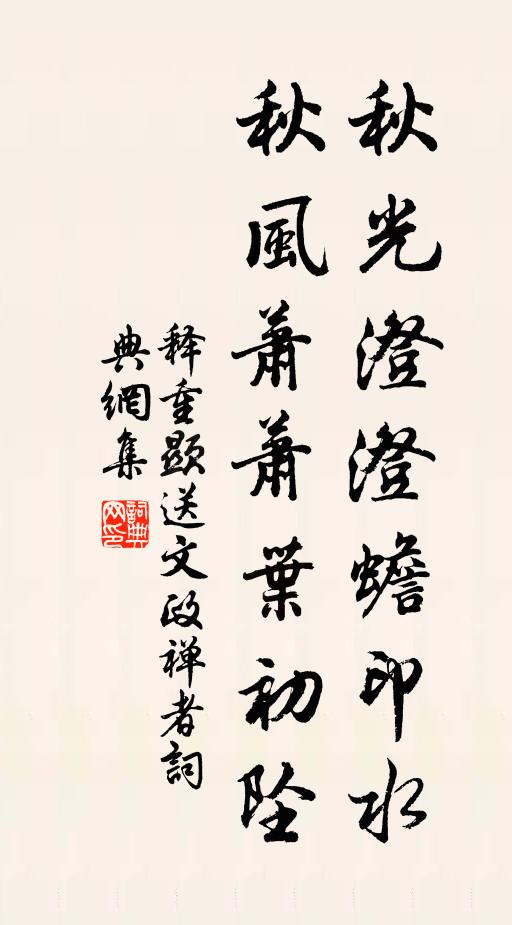 秋光澄澄蟾印水
秋風蕭蕭葉初墜
释重顯送文政禅者詞
典網集
詞典
网印